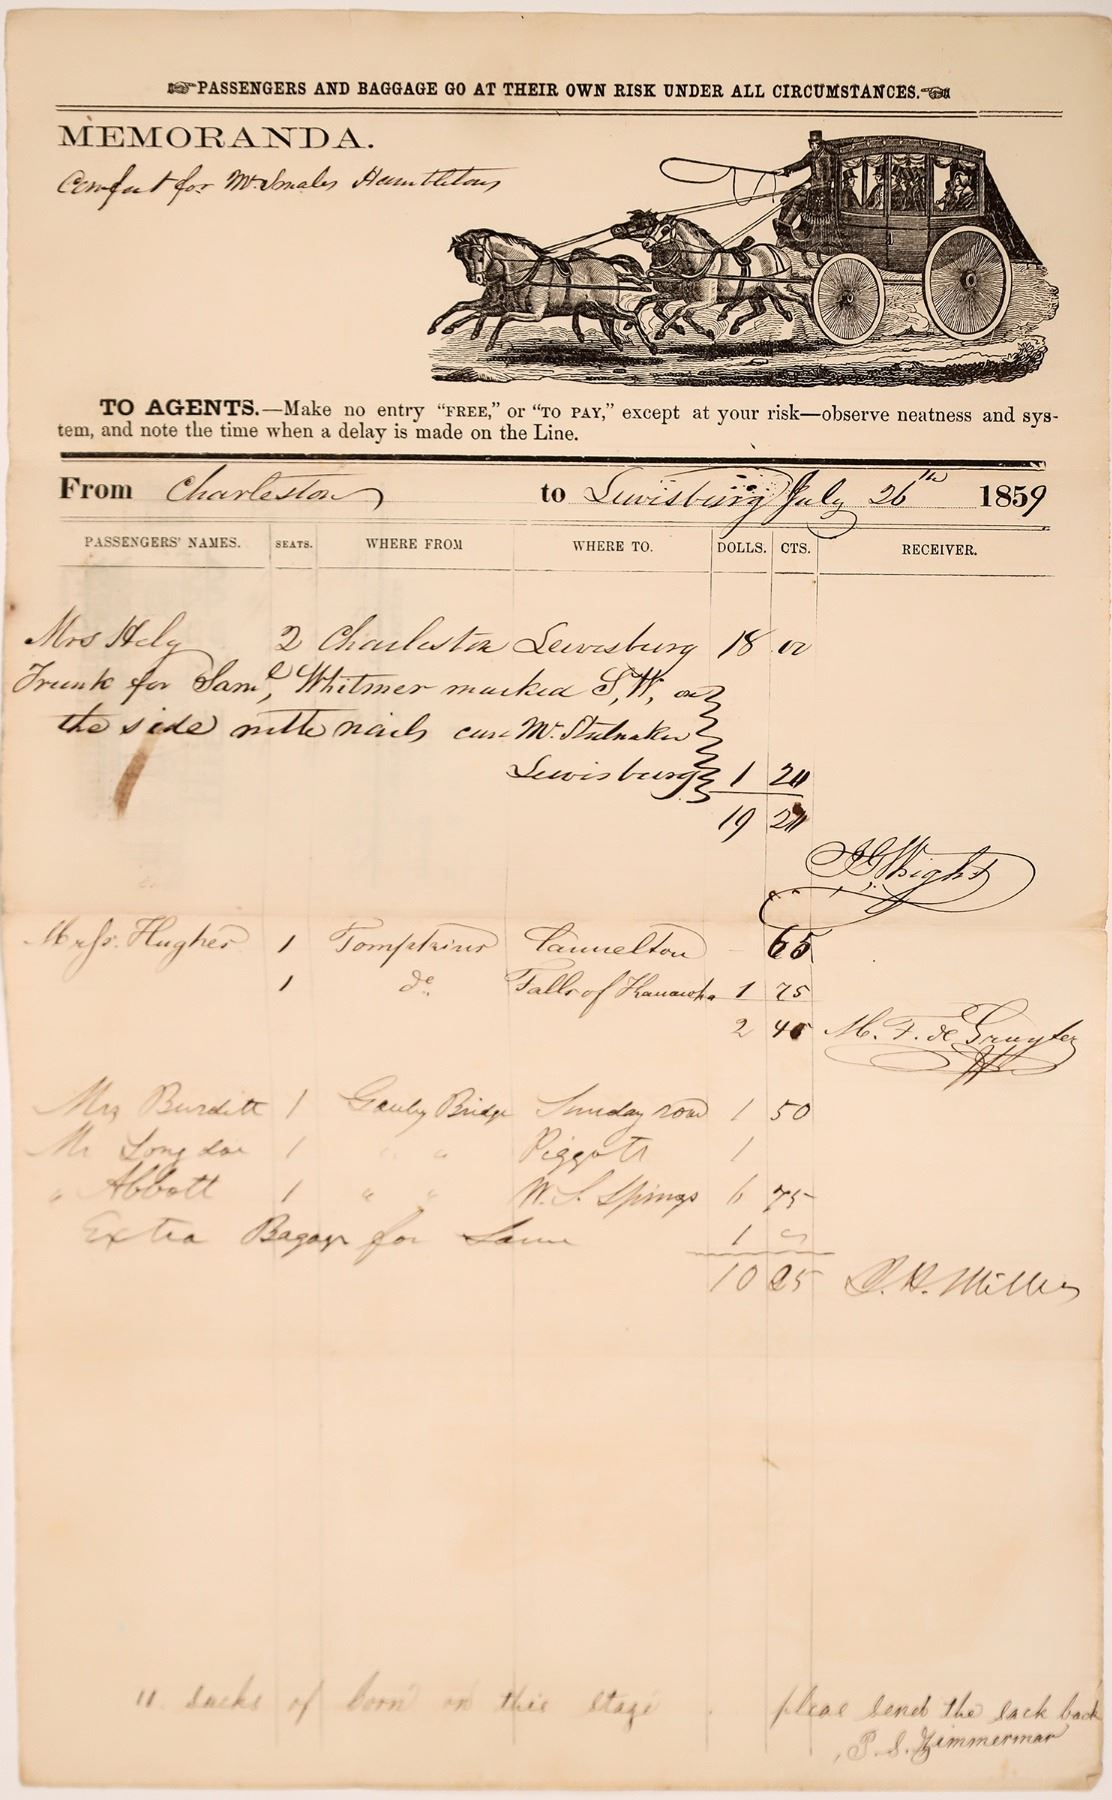 PASSENGERS AND BAGGAGE GO AT THEIR OWN RISK UNDER ALL CIRCUMSTANCES.
MEMORANDA.
for Mr Hambletons
TO AGENTS.—Make no entry "FREE," or "TO PAY," except at your risk—observe neatness and sys-
tem, and note the time when a delay is made on the Line.
From Charleston to Lewisburg July 26th 1859
PASSENGERS' NAMES. SEATS. WHERE FROM WHERE TO. DOLLS. CTS. RECEIVER.
Mrs Hely 2 Charleston Lewisburg 18 00
Trunk for Saml, Whitmer marked S, W, on
the side with nails care Mr. Stulnaker
Lewisburg 1 20
19 20
J G Wright
Messrs. Hughes 1 Tompkins Cannelton 65
1 do. Falls of Kanawha 1 75
2 40 M. F. de Gruyter
Mrs Burditt 1 Gauley Bridge Sunday road 1 50
Mr Long 1 " " Piggots 1
" Abbott 1 " " W. S. Springs 6 75
Extra Bagage for Same 1
10 25 H. Miller
11 sacks of corn on this stage. pleas send the sack back
P. S. Zimmerman